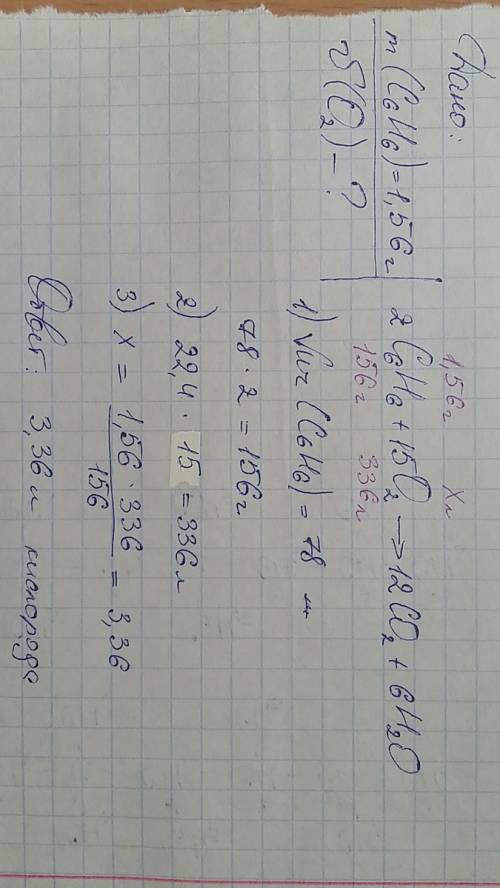 Дано:
m(C₆H₆)=1,56г
V(O₂)-?
1,56г Xл
2C₆H₆+15O₂→12CO₂+6H₂O
156г 336л
(C₆H₆)=78
78·2=156г
2) 22,4·15=336л
3) x = 1,56·336 / 156 = 3,36
Ответ: 3,36л кислорода